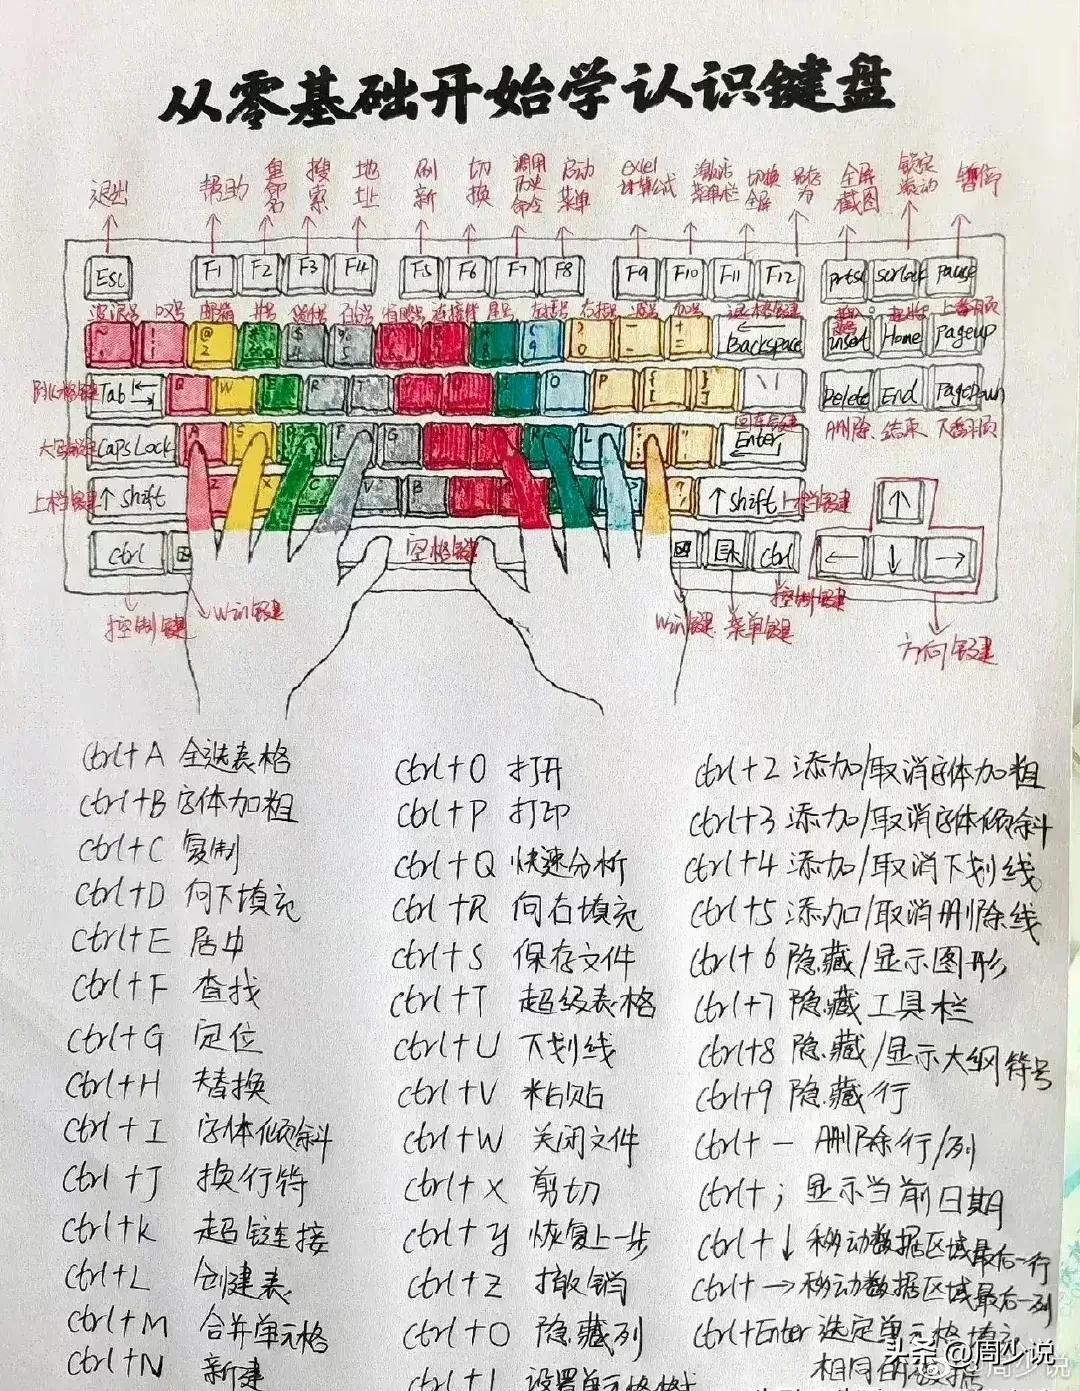 从零基础开始学认识键盘
退出 帮助 重命名 搜索 地址 刷新 切换 调用历史命令 启动菜单 excel计算公式 激活菜单栏 切换全屏 另存为 全屏截图 锁定滚动 暂停
Esc F1 F2 F3 F4 F5 F6 F7 F8 F9 F10 F11 F12 Prtsc Scrlock Pause
波浪号 叹号 邮箱 井号 百分号 连接符 星号 左括号 右括号 减号 加号 退格键 上番页
~ ! @ 2 $ 4 % 5 ( 9 ) 0 - + = Backspace Insert Home Pageup
Tab Q W E R T O P [ ] \ | Delete End PageDown
删除 结束 下番页
大写锁定键 Caps Lock A S F G K L ; 回车键 Enter
上档键 ↑ Shift Z X C V B ↑ Shift 上档键 ↑
Ctrl 空格键 Ctrl ← ↓ →
控制键 Win键 Win键 菜单键 控制键 方向键
Ctrl+A 全选表格
Ctrl+B 字体加粗
Ctrl+C 复制
Ctrl+D 向下填充
Ctrl+E 居中
Ctrl+F 查找
Ctrl+G 定位
Ctrl+H 替换
Ctrl+I 字体倾斜
Ctrl+J 换行符
Ctrl+K 超链接
Ctrl+L 创建表
Ctrl+M 合并单元格
Ctrl+N 新建
Ctrl+O 打开
Ctrl+P 打印
Ctrl+Q 快速分析
Ctrl+R 向右填充
Ctrl+S 保存文件
Ctrl+T 超级表格
Ctrl+U 下划线
Ctrl+V 粘贴
Ctrl+W 关闭文件
Ctrl+X 剪切
Ctrl+y 恢复上一步
Ctrl+Z 撤销
Ctrl+0 隐藏列
Ctrl+1 设置单元格格式
Ctrl+2 添加/取消字体加粗
Ctrl+3 添加/取消字体倾斜
Ctrl+4 添加/取消下划线
Ctrl+5 添加/取消删除线
Ctrl+6 隐藏/显示图形
Ctrl+7 隐藏工具栏
Ctrl+8 隐藏/显示大纲符号
Ctrl+9 隐藏行
Ctrl+- 删除行/列
Ctrl+; 显示当前日期
Ctrl+↓ 移动数据区域最后一行
Ctrl+→ 移动数据区域最后一列
Ctrl+Enter 选定单元格填充
相同的数据
头条@周少说
@周少说